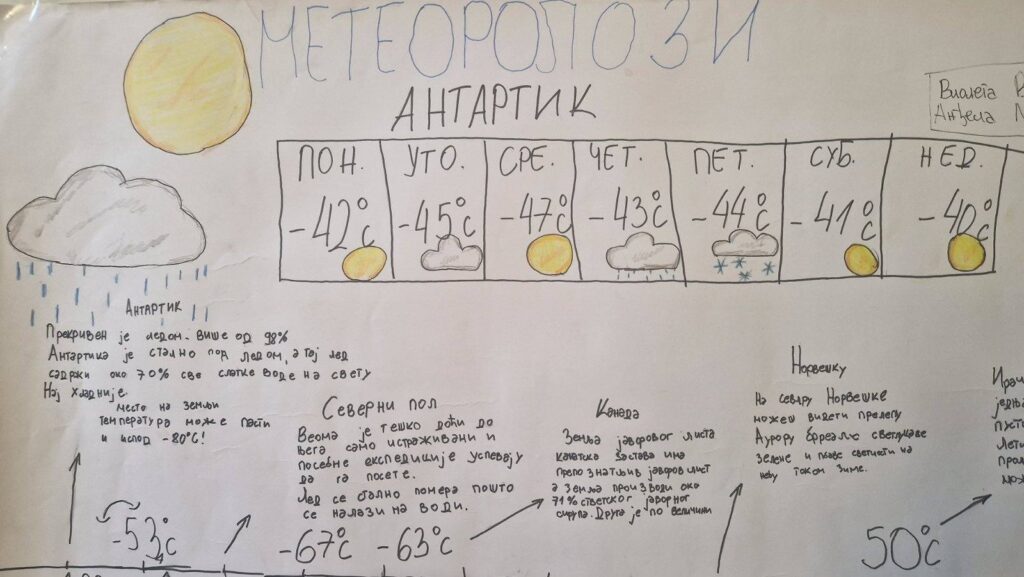 МЕТЕОРОЛОЗИ
АНТАРТИК
Виолета
Анђела
ПОН. УТО. СРЕ. ЧЕТ. ПЕТ. СУБ. НЕД.
-42°C -45°C -47°C -43°C -44°C -41°C -40°C
АНТАРТИК
Прекривен је ледом. више од 98%
Антартика је стално под ледом, а тај лед
садржи око 70% све слатке воде на свету
Нај хладније.
место на земљи
температура може пасти
и испод -80°C!
СЕВЕРНИ ПОЛ
Веома је тешко доћи до
њега само истраживани и
посебне експедиције успевају
да га посете.
Лед се стално помера пошто
се налази на води.
Канада
Земља јаворовог листа
канатска застава има
препознатљив јаворов лист
а земља производи око
71% стветског јаворног
сирупа. Друга је по величини
Норвешку
На северу Норвешке
можеш видети прелепу
Аурору бореалис светлуцаве
зелене и плаве светлости на
небу током зиме.
-53°C
-67°C -63°C
50°C